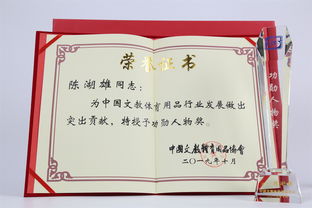 荣誉证书
陈湖雄同志：
为中国文教体育用品行业发展做出
突出贡献，特授予功勋人物奖。
中国文教体育用品协会
二〇一九年十月
功勋人物奖